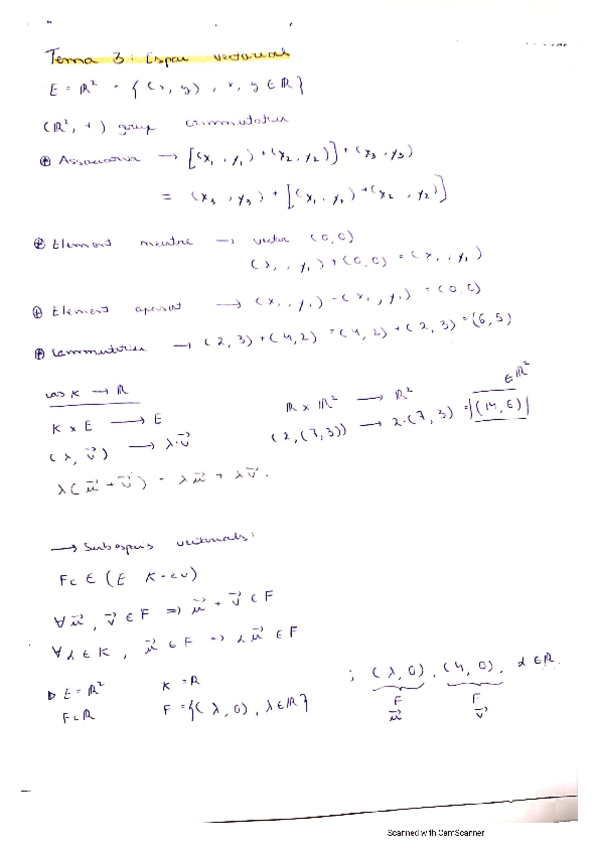 Tema 3: Espais vectorials
E = ℝ² = {(x, y), x, y ∈ ℝ}
(ℝ², +) grup commutatiu
⊕ Associativa → [(x₁, y₁) + (x₂, y₂)] + (x₃, y₃)
= (x₃, y₃) + [(x₁, y₁) + (x₂, y₂)]
⊕ Element neutre → vector (0,0)
(x₁, y₁) + (0,0) = (x₁, y₁)
⊕ Element oposat → (x₁, y₁) - (x₁, y₁) = (0,0)
⊕ Commutativa → (2,3) + (4,2) = (4,2) + (2,3) = (6,5)
cos K → ℝ
K × E → E
(λ, v⃗) → λ·v⃗
λ(u⃗ + v⃗) = λu⃗ + λv⃗.
ℝ × ℝ² → ℝ²
(2, (7,3)) → 2·(7,3) = (14,6) ∈ ℝ²
→ Subespais vectorials:
F ⊂ E (E K-ev)
∀ u⃗, v⃗ ∈ F ⇒ u⃗ + v⃗ ∈ F
∀ λ ∈ K, u⃗ ∈ F ⇒ λu⃗ ∈ F
E = ℝ² K = ℝ
F ⊂ ℝ F = {(λ, 0), λ ∈ ℝ} ; (λ, 0), (4, 0), λ ∈ ℝ.
F F
u⃗ v⃗
Scanned with CamScanner